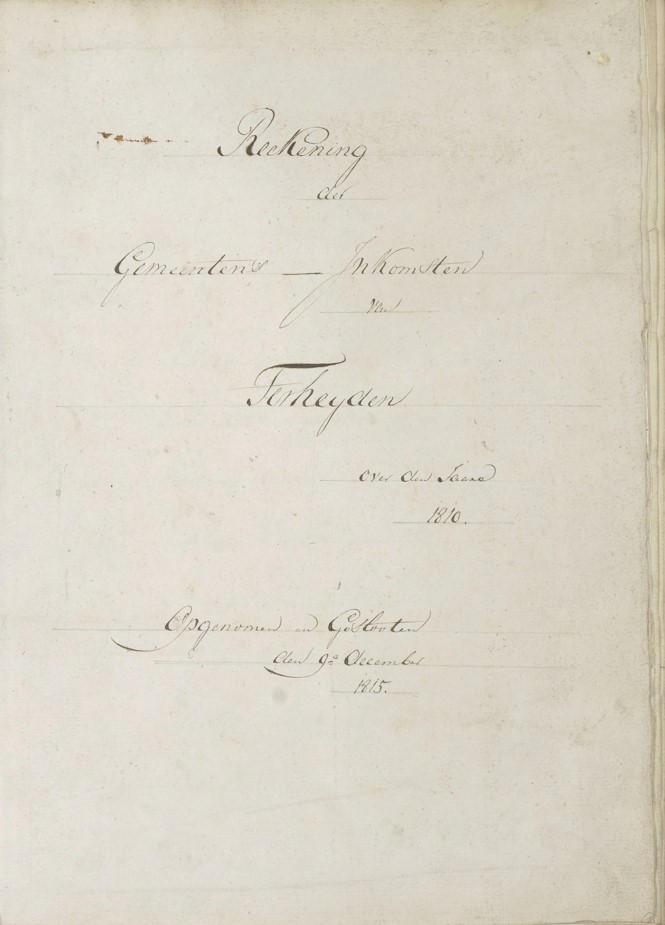 Reekening
der
Gemeenten's — Inkomsten
van
Terheyden
over den Jaare
1810.
Opgenomen en Geslooten
den 9e december
1815.